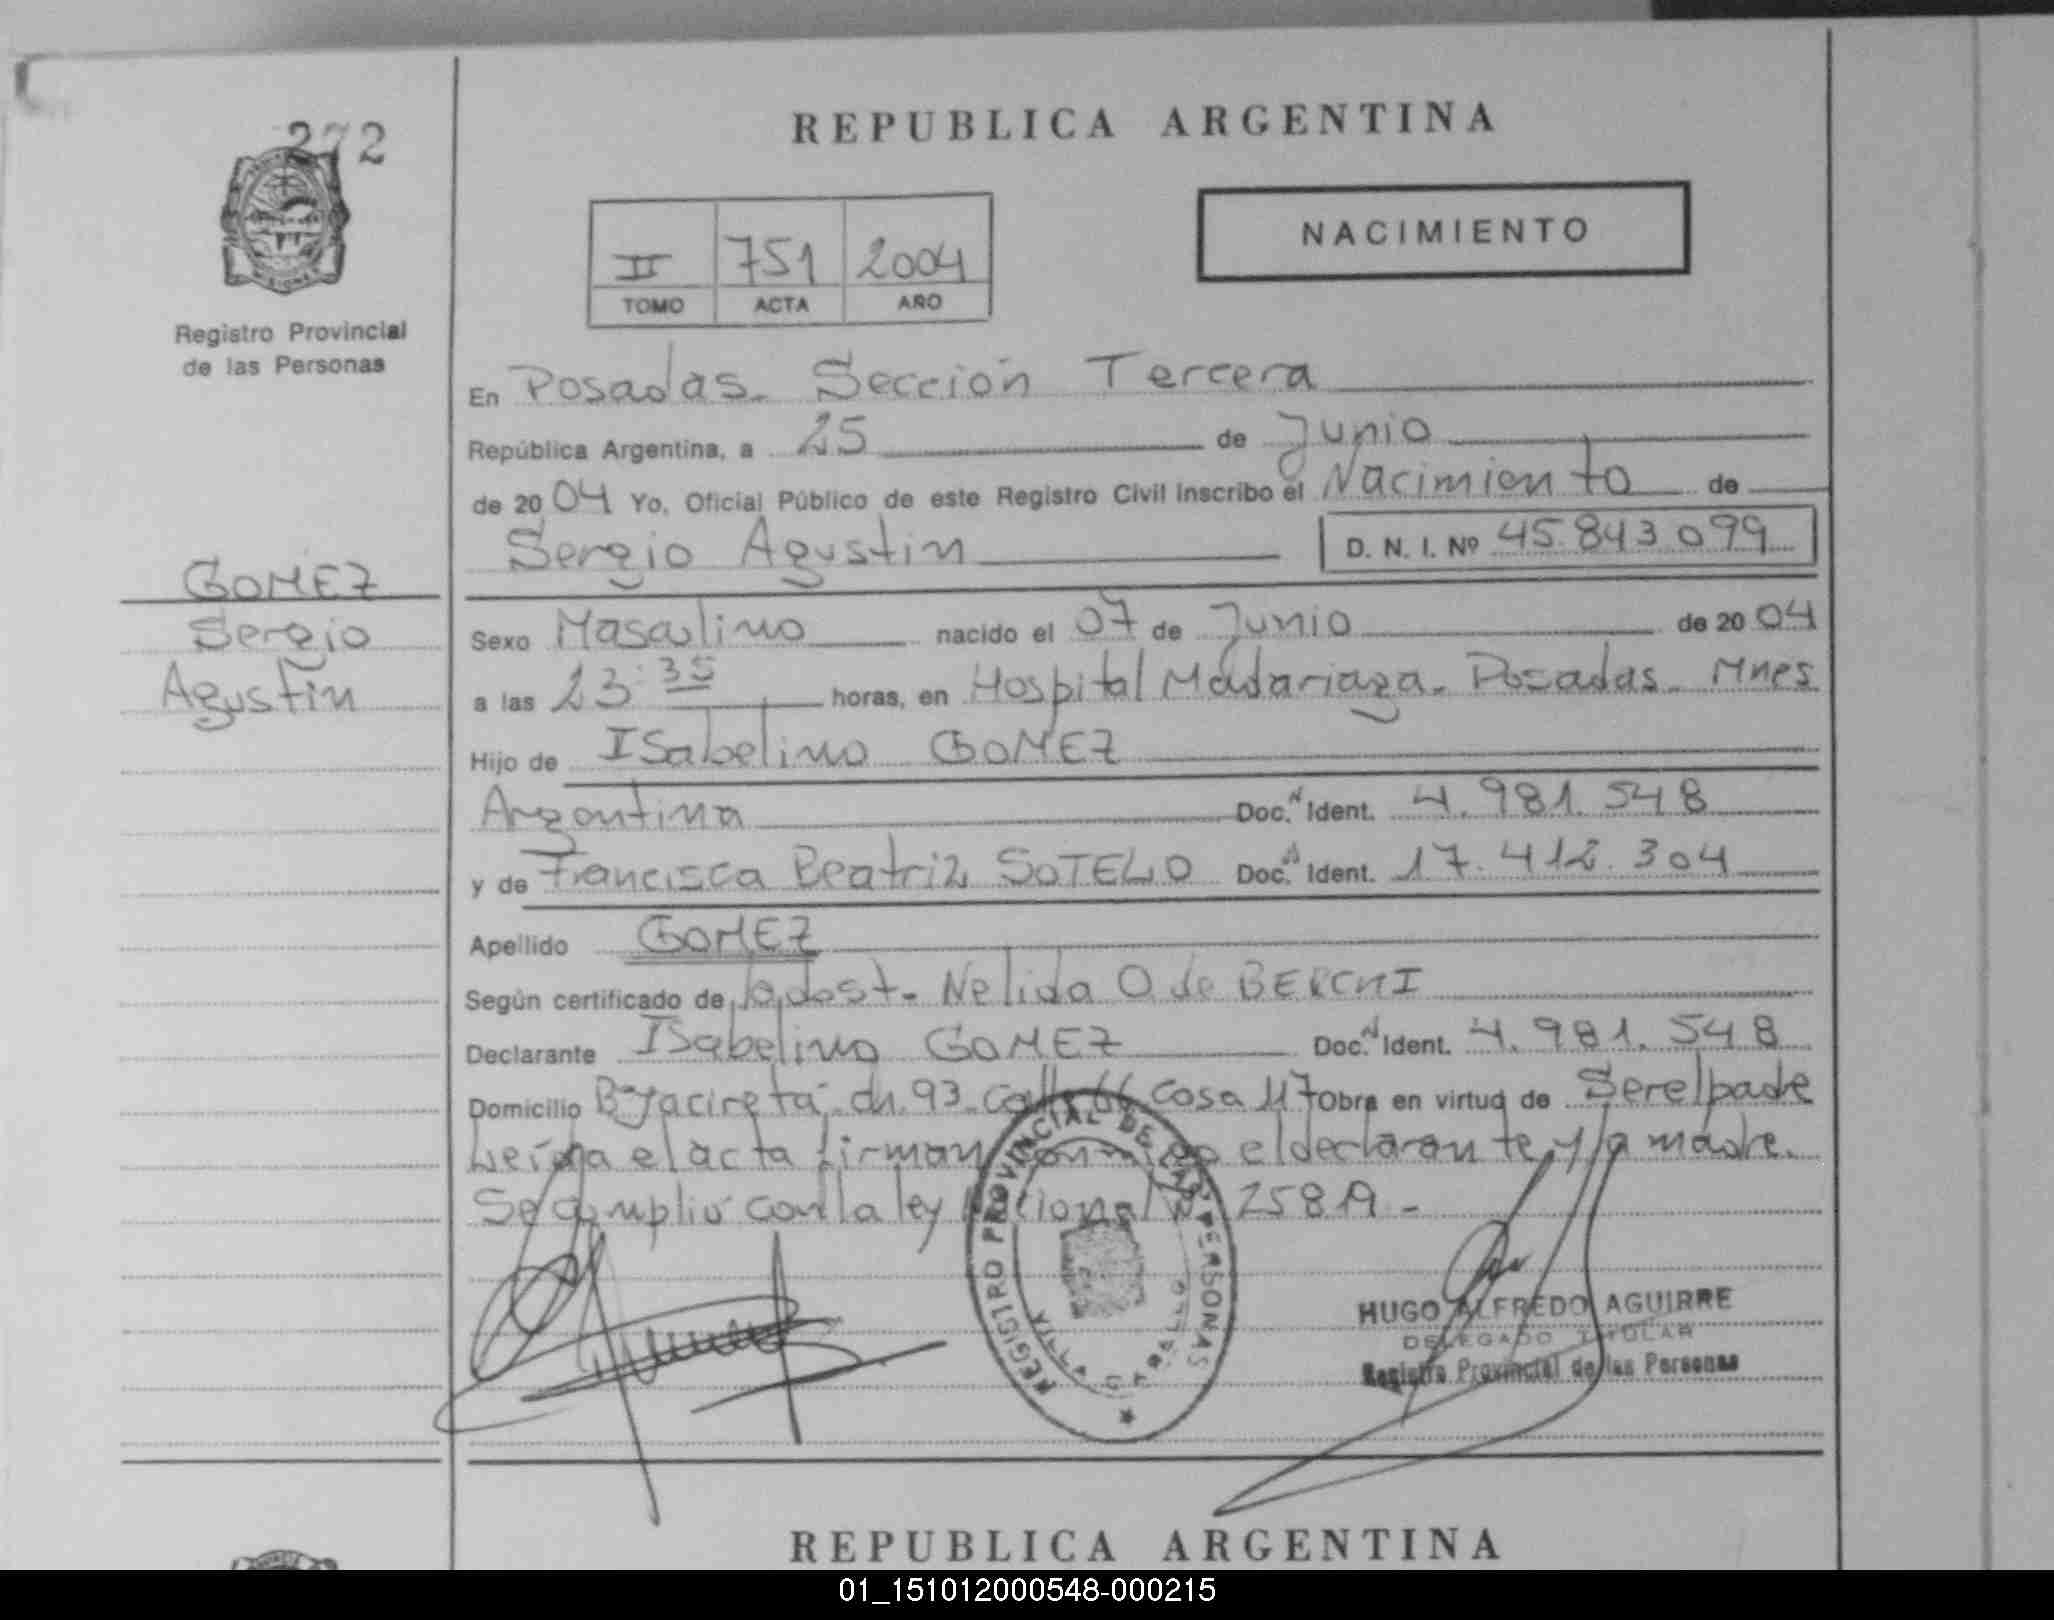 REPUBLICA ARGENTINA
272
NACIMIENTO
II 751 2004
TOMO ACTA AÑO
Registro Provincial
de las Personas
En Posadas. Sección Tercera
República Argentina, a 25 de Junio
de 2004 Yo, Oficial Público de este Registro Civil inscribo el Nacimiento de
Sergio Agustin D. N. I. Nº 45.843.099
GOMEZ
Sergio
Agustin
Sexo Masculino nacido el 07 de Junio de 2004
a las 23:35 horas, en Hospital Madariaga. Posadas. Mnes
Hijo de Isabelino GOMEZ
Argentina Doc. N Ident. 4.981.548
y de Francisca Beatriz SOTELO Doc. N Ident. 17.412.304
Apellido GOMEZ
Según certificado de Nelida O. de
Declarante Isabelino GOMEZ Doc. N Ident. 4.981.548
Domicilio Bº Yacireta ch. 93 calle casa 117 Obra en virtud de Ser el padre
Leida el acta firman conmigo el declarante y la madre.
Se cumplió con la ley Nacional Nº 25819 -
REGISTRO PROVINCIAL DE LAS PERSONAS
HUGO ALFREDO AGUIRRE
DELEGADO TITULAR
Registro Provincial de las Personas
REPUBLICA ARGENTINA
01_151012000548-000215